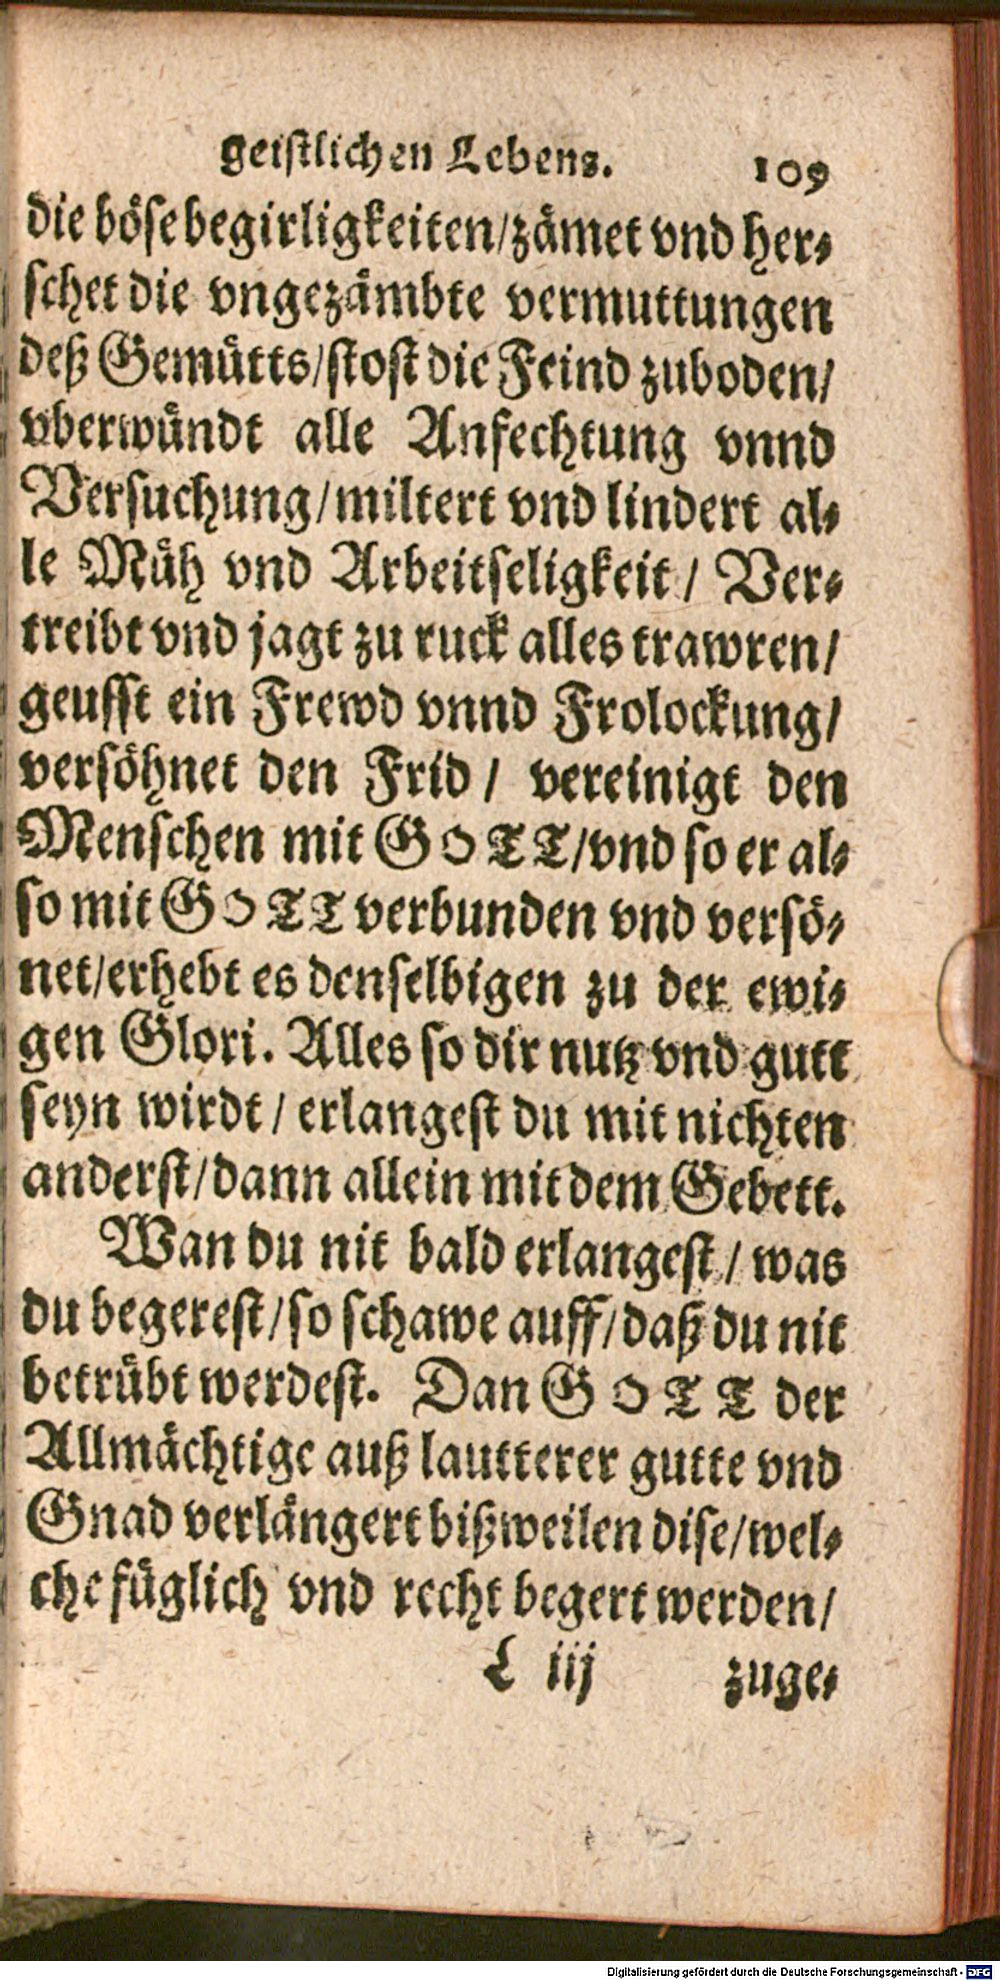 geistlichen Lebens. 109
die böse begirligkeiten/zämet vnd her⸗
schet die vngezämbte vermuttungen
deß Gemütts/stost die Feind zuboden/
vberwündt alle Anfechtung vnnd
Versuchung/miltert vnd lindert al⸗
le Müh vnd Arbeitseligkeit/ Ver⸗
treibt vnd jagt zu ruck alles trawren/
geusst ein Frewd vnnd Frolockung/
versöhnet den Frid/ vereinigt den
Menschen mit GOTT/vnd so er al⸗
so mit GOTT verbunden vnd versö⸗
net/erhebt es denselbigen zu der ewi⸗
gen Glori. Alles so dir nutz vnd gutt
seyn wirdt/ erlangest du mit nichten
anderst/dann allein mit dem Gebett.
Wan du nit bald erlangest/ was
du begerest/so schawe auff/daß du nit
betrübt werdest. Dan GOTT der
Allmächtige auß lautterer gutte vnd
Gnad verlängert bißweilen dise/wel⸗
che füglich vnd recht begert werden/
L iij zuge⸗
Digitalisierung gefördert durch die Deutsche Forschungsgemeinschaft - DFG